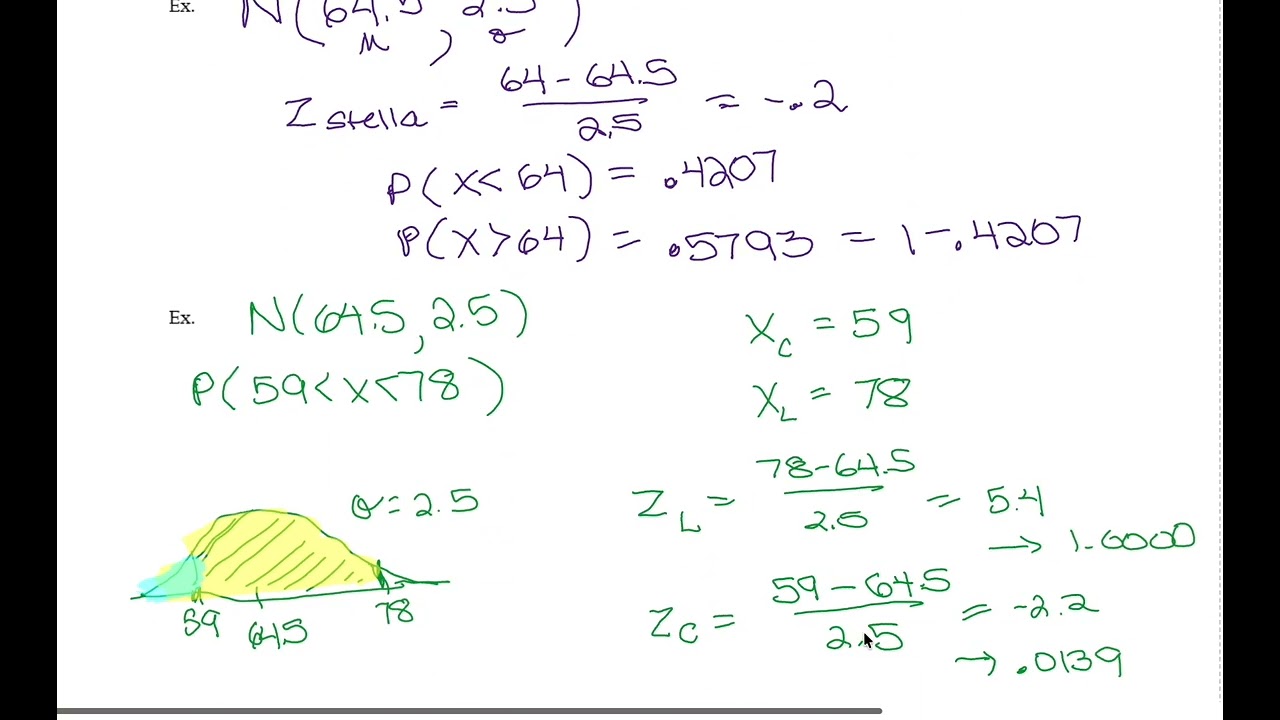 Ex. N(64.5, 2.5)
μ , σ
Z stella = 64 - 64.5 / 2.5 = -.2
P(X < 64) = .4207
P(X > 64) = .5793 = 1 - .4207
Ex. N(64.5, 2.5)
P(59 < X < 78)
X_C = 59
X_L = 78
Z_L = 78 - 64.5 / 2.5 = 5.4
→ 1.0000
Z_C = 59 - 64.5 / 2.5 = -2.2
→ .0139
σ = 2.5
59 64.5 78